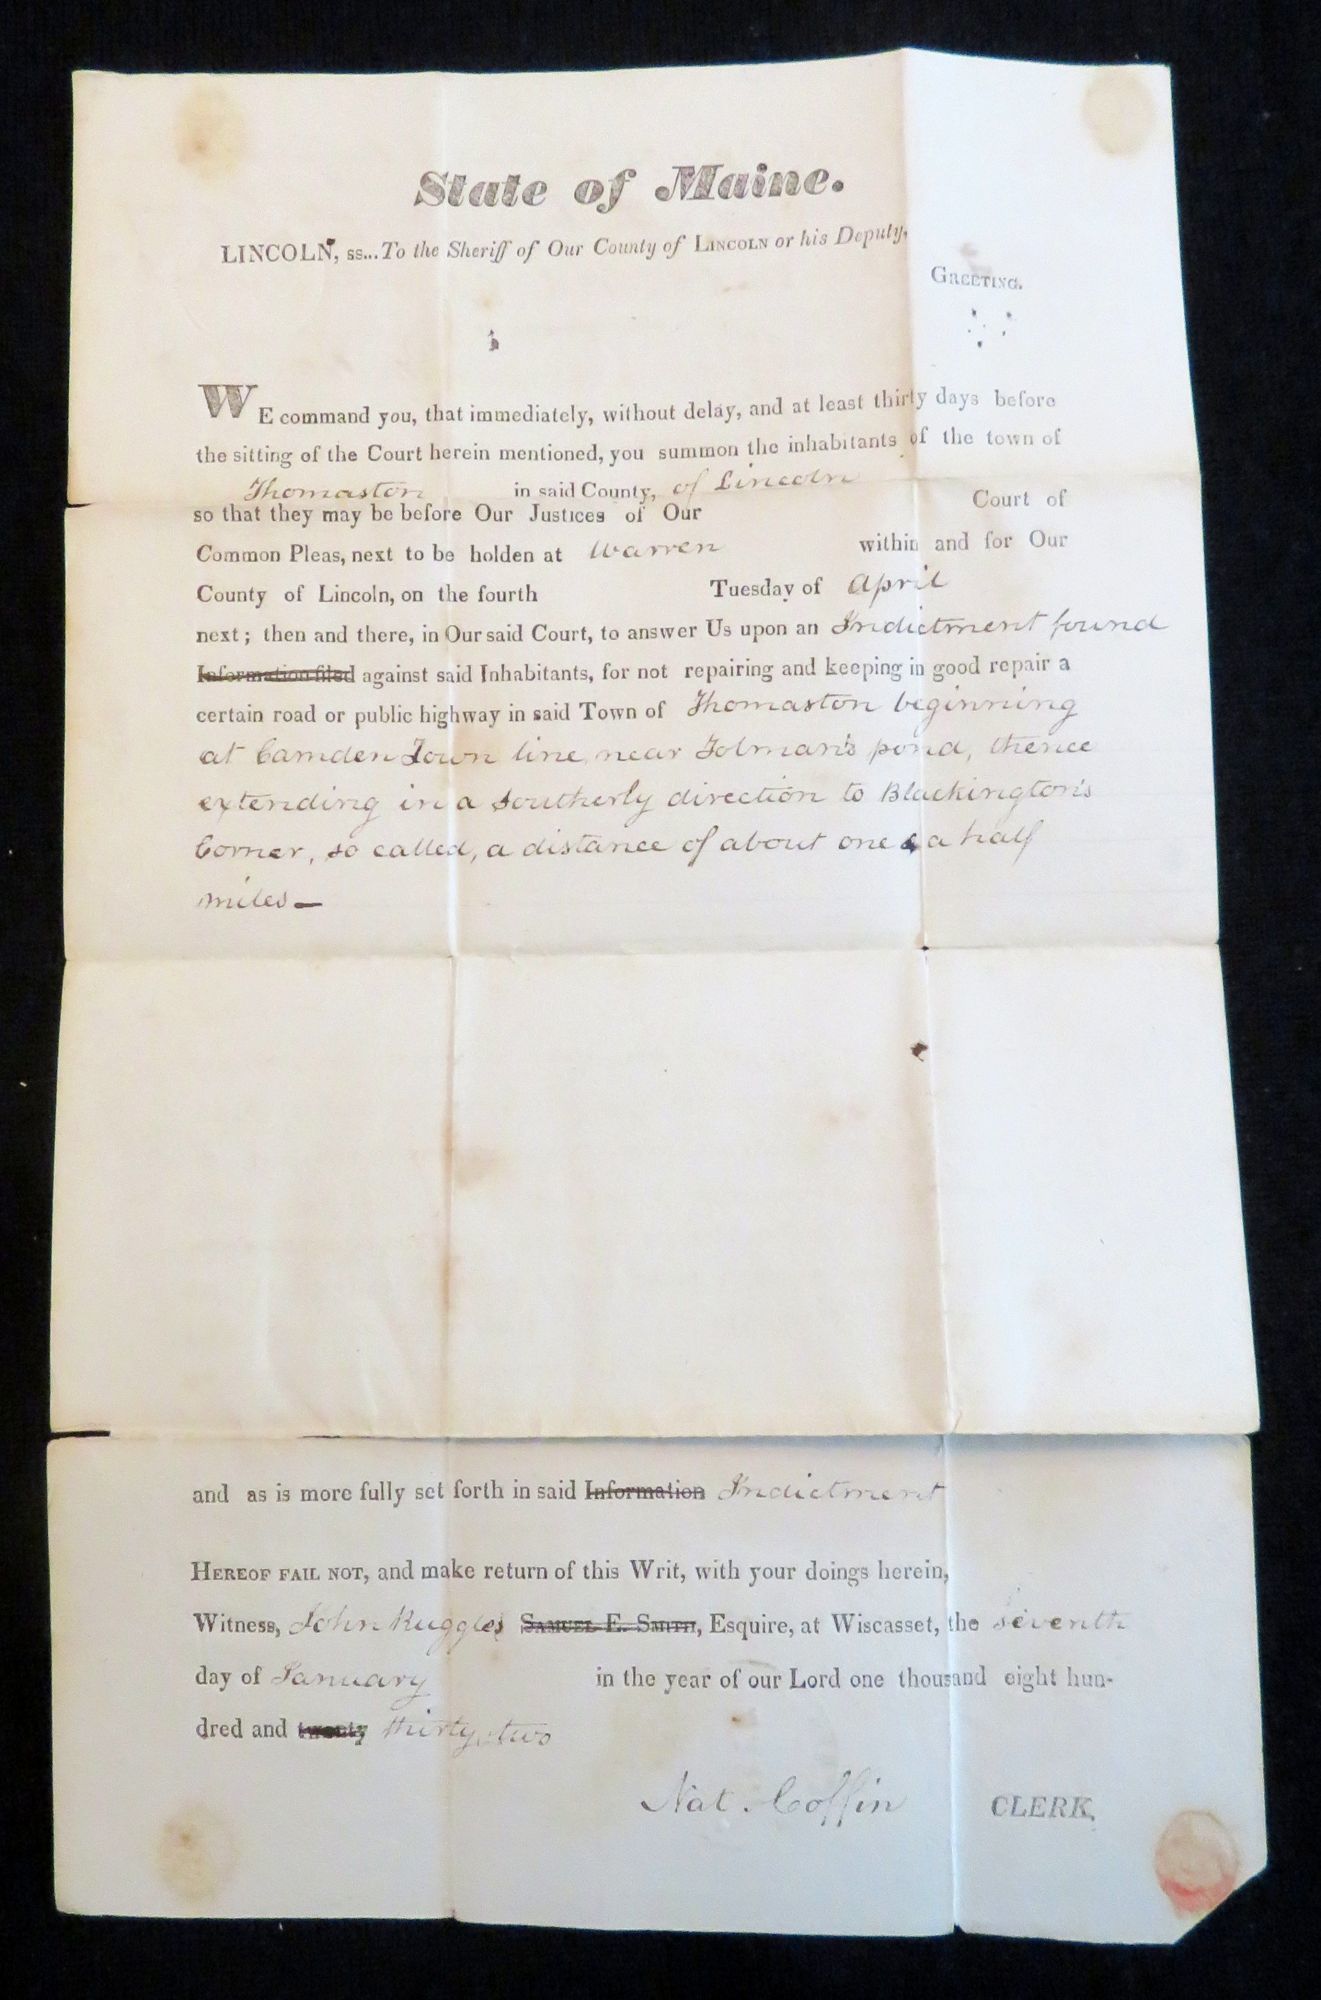 State of Maine.
LINCOLN, ss... To the Sheriff of Our County of LINCOLN or his Deputy,
GREETING.
WE command you, that immediately, without delay, and at least thirty days before
the sitting of the Court herein mentioned, you summon the inhabitants of the town of
Thomaston in said County, of Lincoln
so that they may be before Our Justices of Our Court of
Common Pleas, next to be holden at Warren within and for Our
County of Lincoln, on the fourth Tuesday of April
next; then and there, in Our said Court, to answer Us upon an Indictment found
Information filed against said Inhabitants, for not repairing and keeping in good repair a
certain road or public highway in said Town of Thomaston beginning
at Camden Town line near Tolman's pond, thence
extending in a Southerly direction to Blackington's
Corner, so called, a distance of about one & a half
miles —
and as is more fully set forth in said Information Indictment
HEREOF FAIL NOT, and make return of this Writ, with your doings herein,
Witness, John Ruggles SAMUEL E. SMITH, Esquire, at Wiscasset, the seventh
day of January in the year of our Lord one thousand eight hun-
dred and twenty thirty two
Nat. Coffin CLERK.